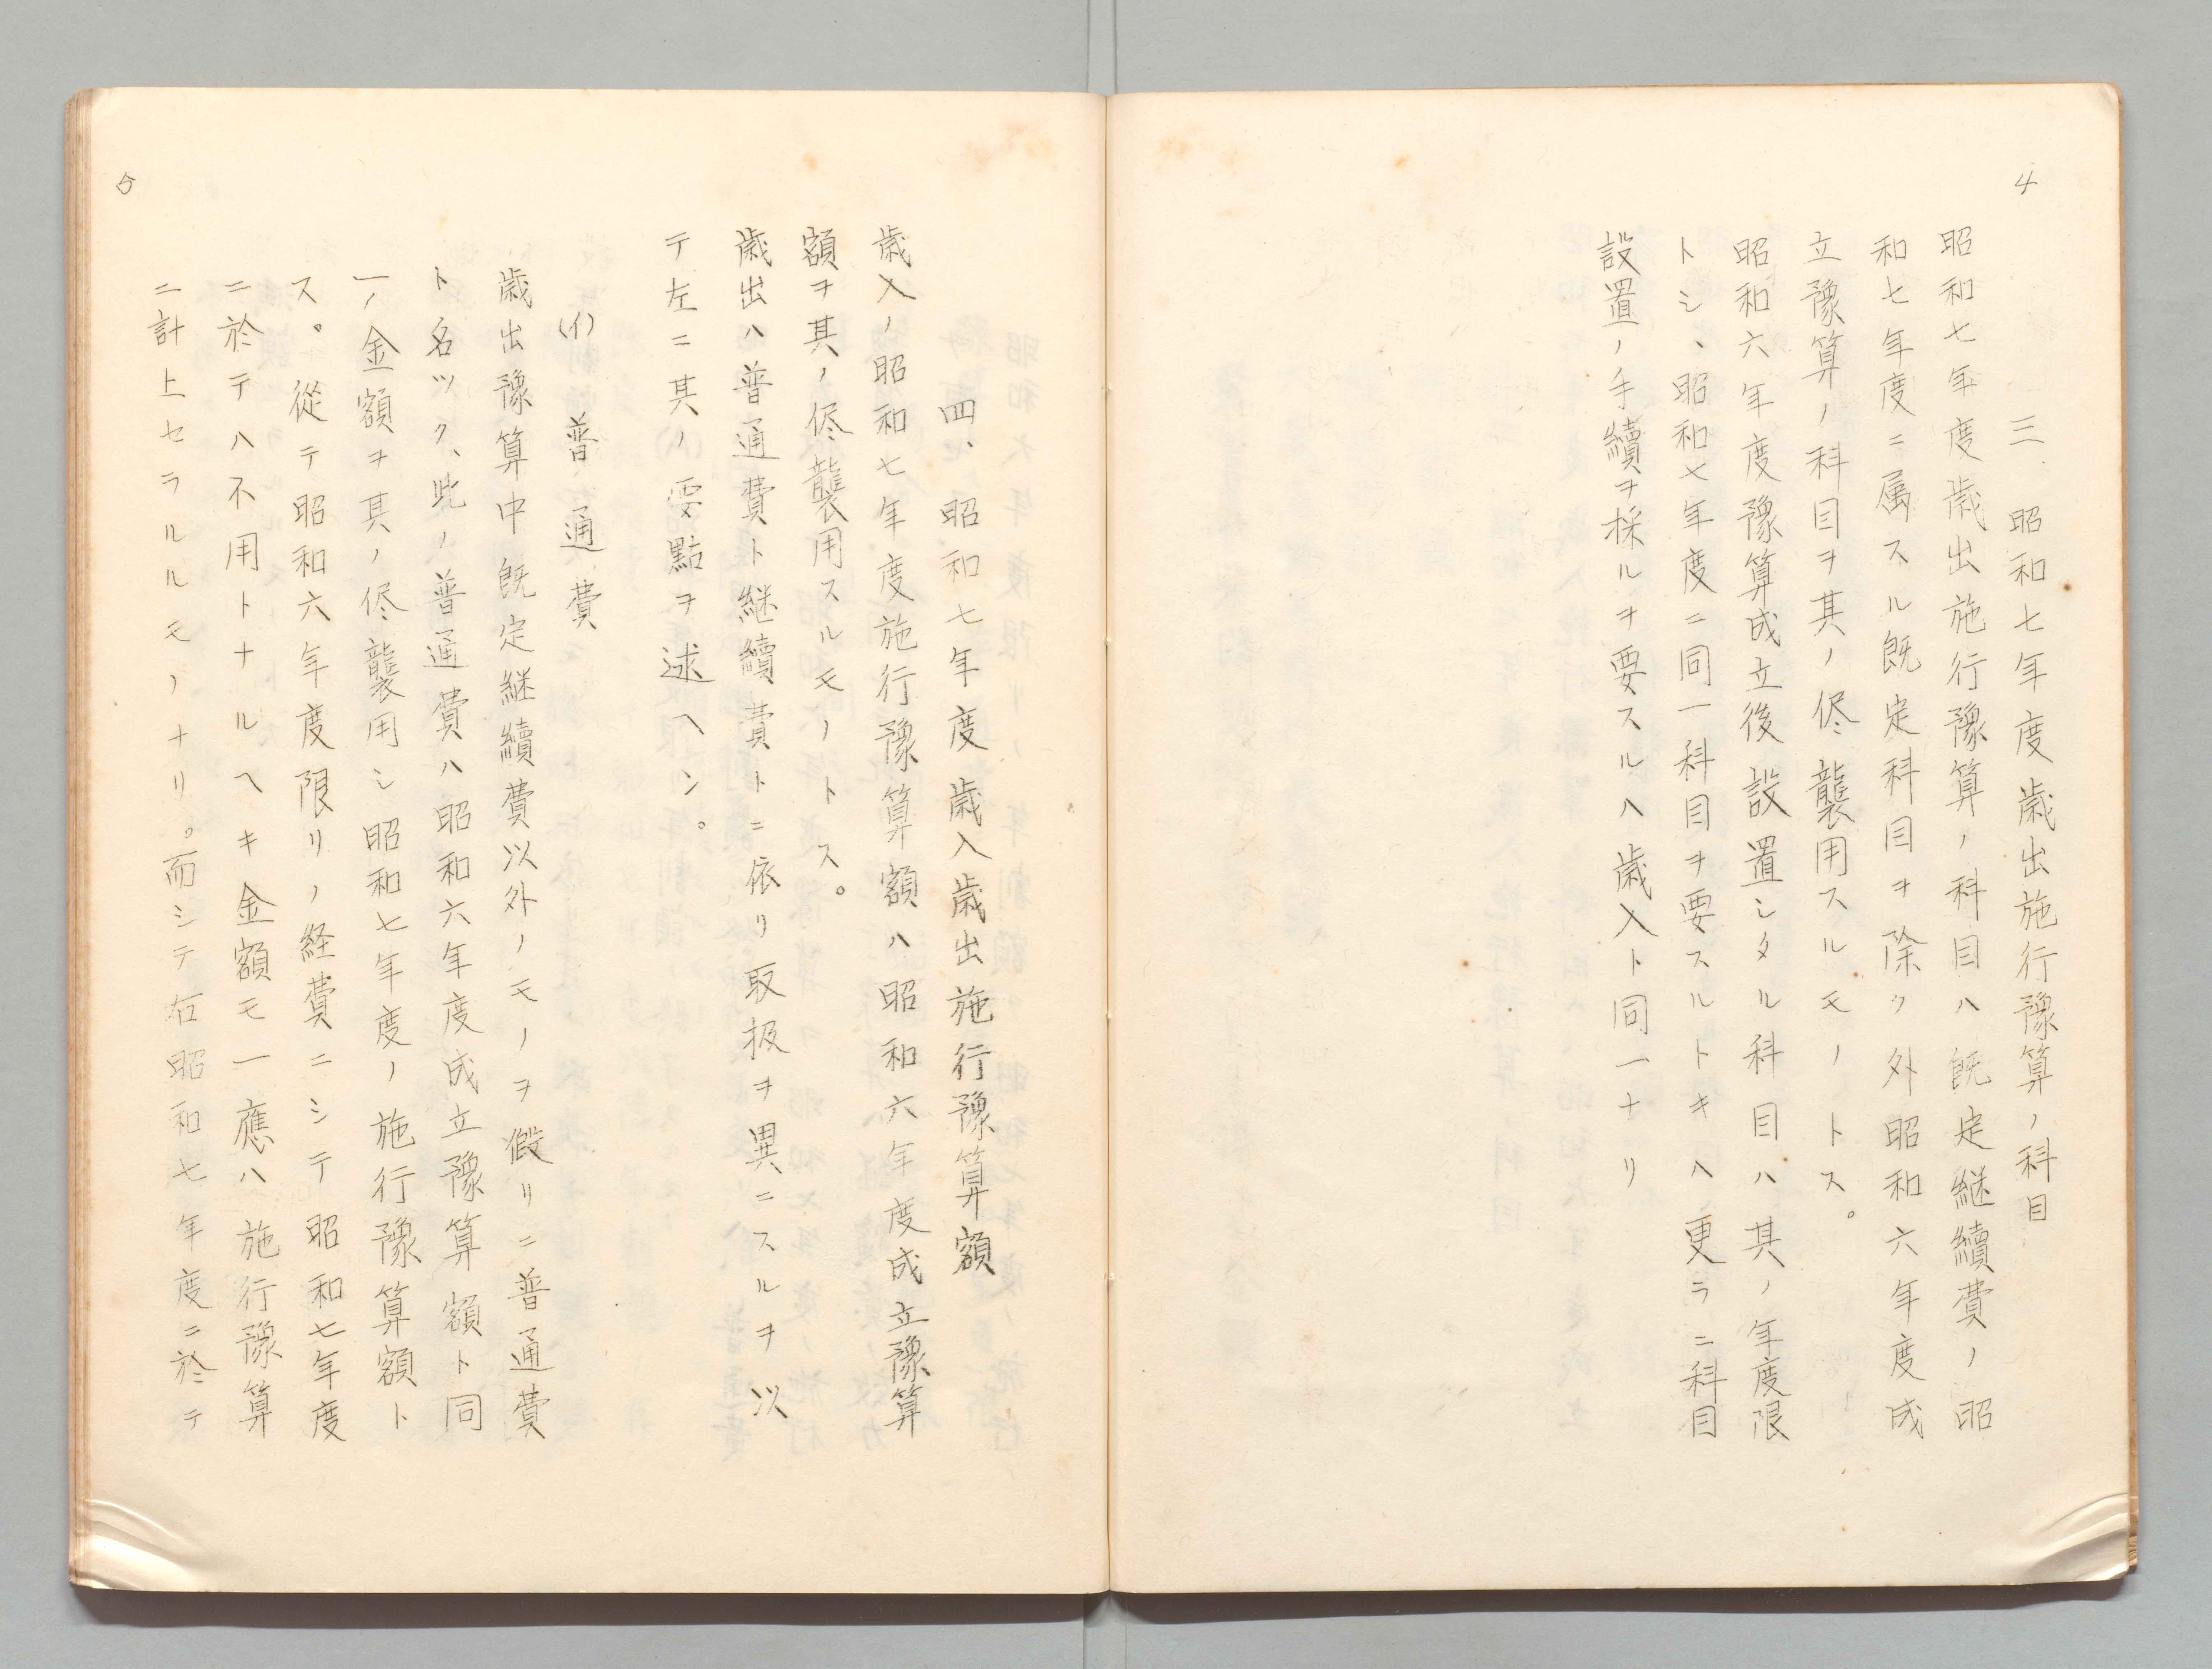 4
三、昭和七年度歳出施行豫算ノ科目
昭和七年度歳出施行豫算ノ科目ハ既定継續費ノ昭
和七年度ニ属スル既定科目ヲ除ク外昭和六年度成
立豫算ノ科目ヲ其ノ侭襲用スルモノトス。
昭和六年度豫算成立後設置シタル科目ハ其ノ年度限
トシ、昭和七年度ニ同一科目ヲ要スルトキハ更ラニ科目
設置ノ手續ヲ採ルヲ要スルハ歳入ト同一ナリ
四、昭和七年度歳入歳出施行豫算額
歳入ノ昭和七年度施行豫算額ハ昭和六年度成立豫算
額ヲ其ノ侭襲用スルモノトス。
歳出ハ普通費ト継續費トニ依リ取扱ヲ異ニスルヲ以
テ左ニ其ノ要點ヲ述ヘン。
(イ) 普通費
歳出豫算中既定継續費以外ノモノヲ假リニ普通費
ト名ツク、此ノ普通費ハ昭和六年度成立豫算額ト同
一ノ金額ヲ其ノ侭襲用シ昭和七年度ノ施行豫算額ト
ス。從テ昭和六年度限リノ経費ニシテ昭和七年度
ニ於テハ不用トナルヘキ金額モ一應ハ施行豫算
ニ計上セラルルモノナリ。而シテ右昭和七年度ニ於テ
5